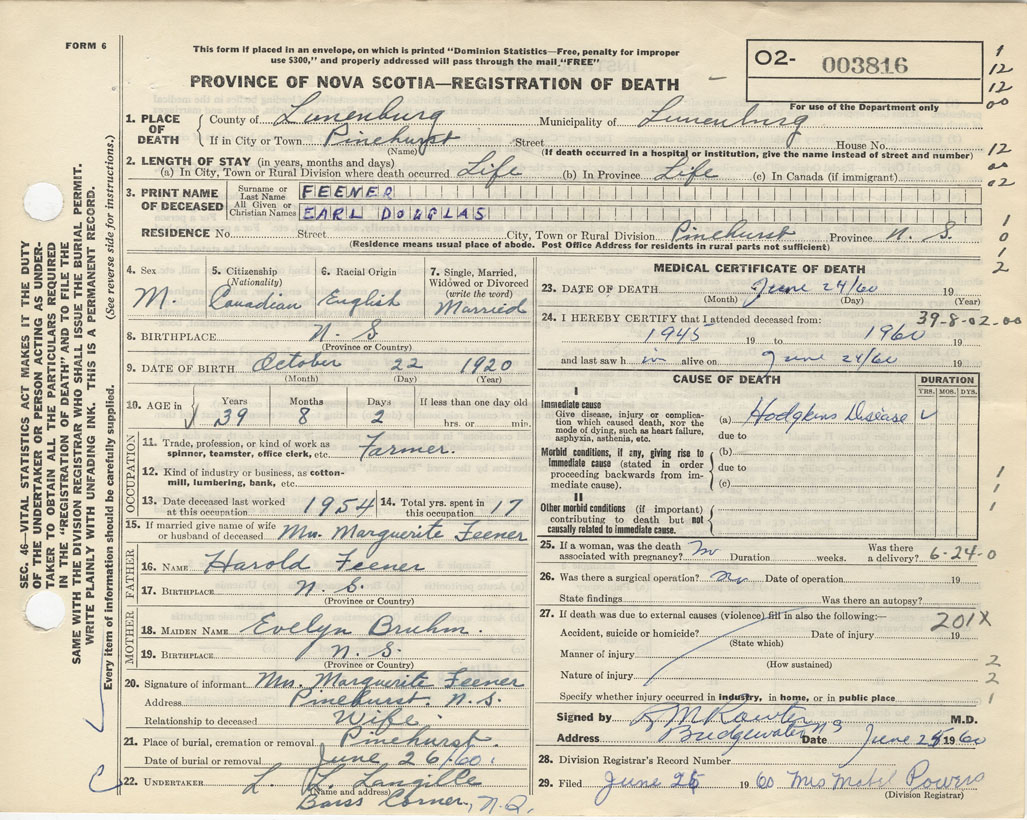 FORM 6
This form if placed in an envelope, on which is printed "Dominion Statistics—Free, penalty for improper
use $300," and properly addressed will pass through the mail "FREE"
PROVINCE OF NOVA SCOTIA—REGISTRATION OF DEATH
02- 003816
For use of the Department only
1
12
12
00
12
00
02
1
0
1
2
SEC. 46—VITAL STATISTICS ACT MAKES IT THE DUTY
OF THE UNDERTAKER OR PERSON ACTING AS UNDER-
TAKER TO OBTAIN ALL THE PARTICULARS REQUIRED
IN THE "REGISTRATION OF DEATH" AND TO FILE THE
SAME WITH THE DIVISION REGISTRAR WHO SHALL ISSUE THE BURIAL PERMIT.
WRITE PLAINLY WITH UNFADING INK. THIS IS A PERMANENT RECORD.
Every item of information should be carefully supplied. (See reverse side for instructions.)
1. PLACE OF DEATH
County of Lunenburg Municipality of Lunenburg
If in City or Town Pinehurst Street House No.
(Name) (If death occurred in a hospital or institution, give the name instead of street and number)
2. LENGTH OF STAY (in years, months and days)
(a) In City, Town or Rural Division where death occurred Life (b) In Province Life (c) In Canada (if immigrant)
3. PRINT NAME OF DECEASED
Surname or Last Name FEENER
All Given or Christian Names EARL DOUGLAS
RESIDENCE No. Street City, Town or Rural Division Pinehurst Province N. S.
(Residence means usual place of abode. Post Office Address for residents in rural parts not sufficient)
4. Sex
M.
5. Citizenship
(Nationality)
Canadian
6. Racial Origin
English
7. Single, Married,
Widowed or Divorced
(write the word)
Married
8. BIRTHPLACE N. S
(Province or Country)
9. DATE OF BIRTH October 22 1920
(Month) (Day) (Year)
10. AGE in
Years Months Days If less than one day old
39 8 2 hrs. or min.
OCCUPATION
11. Trade, profession, or kind of work as
spinner, teamster, office clerk, etc. Farmer.
12. Kind of industry or business, as cotton-
mill, lumbering, bank, etc.
13. Date deceased last worked
at this occupation 1954
14. Total yrs. spent in
this occupation 17
15. If married give name of wife
or husband of deceased Mrs. Marguerite Feener
FATHER
16. NAME Harold Feener
17. BIRTHPLACE N. S.
(Province or Country)
MOTHER
18. MAIDEN NAME Evelyn Bruhm.
19. BIRTHPLACE N. S.
(Province or Country)
20. Signature of informant Mrs. Marguerite Feener
Address Pinehurst. N. S.
Relationship to deceased Wife.
21. Place of burial, cremation or removal Pinehurst.
Date of burial or removal June 26/60.
22. UNDERTAKER L. L. Langille
(Name and address)
Corner, N.
MEDICAL CERTIFICATE OF DEATH
23. DATE OF DEATH June 24/60 19
(Month) (Day) (Year)
39-8-02-00
24. I HEREBY CERTIFY that I attended deceased from:
1945 19 to 1960 19
and last saw h im alive on June 24/60 19
CAUSE OF DEATH DURATION
YRS. MOS. DYS.
I
Immediate cause
Give disease, injury or complica-
tion which caused death, not the
mode of dying, such as heart failure,
asphyxia, asthenia, etc.
(a) Hodgkins Disease ✓
due to
Morbid conditions, if any, giving rise to
immediate cause (stated in order
proceeding backwards from im-
mediate cause).
(b)
due to
(c)
II
Other morbid conditions (if important)
contributing to death but not
causally related to immediate cause.
1
1
1
25. If a woman, was the death
associated with pregnancy? no Duration weeks. Was there
a delivery? 6-24-0
26. Was there a surgical operation? no Date of operation 19
State findings Was there an autopsy?
27. If death was due to external causes (violence) fill in also the following:—
201X
Accident, suicide or homicide? Date of injury 19
(State which)
Manner of injury 2
(How sustained)
Nature of injury 2
Specify whether injury occurred in industry, in home, or in public place 1
Signed by M.D.
Address Bridgewater NS Date June 25 1960
28. Division Registrar's Record Number
29. Filed June 25 1960 Mrs Mabel Powers
(Division Registrar)